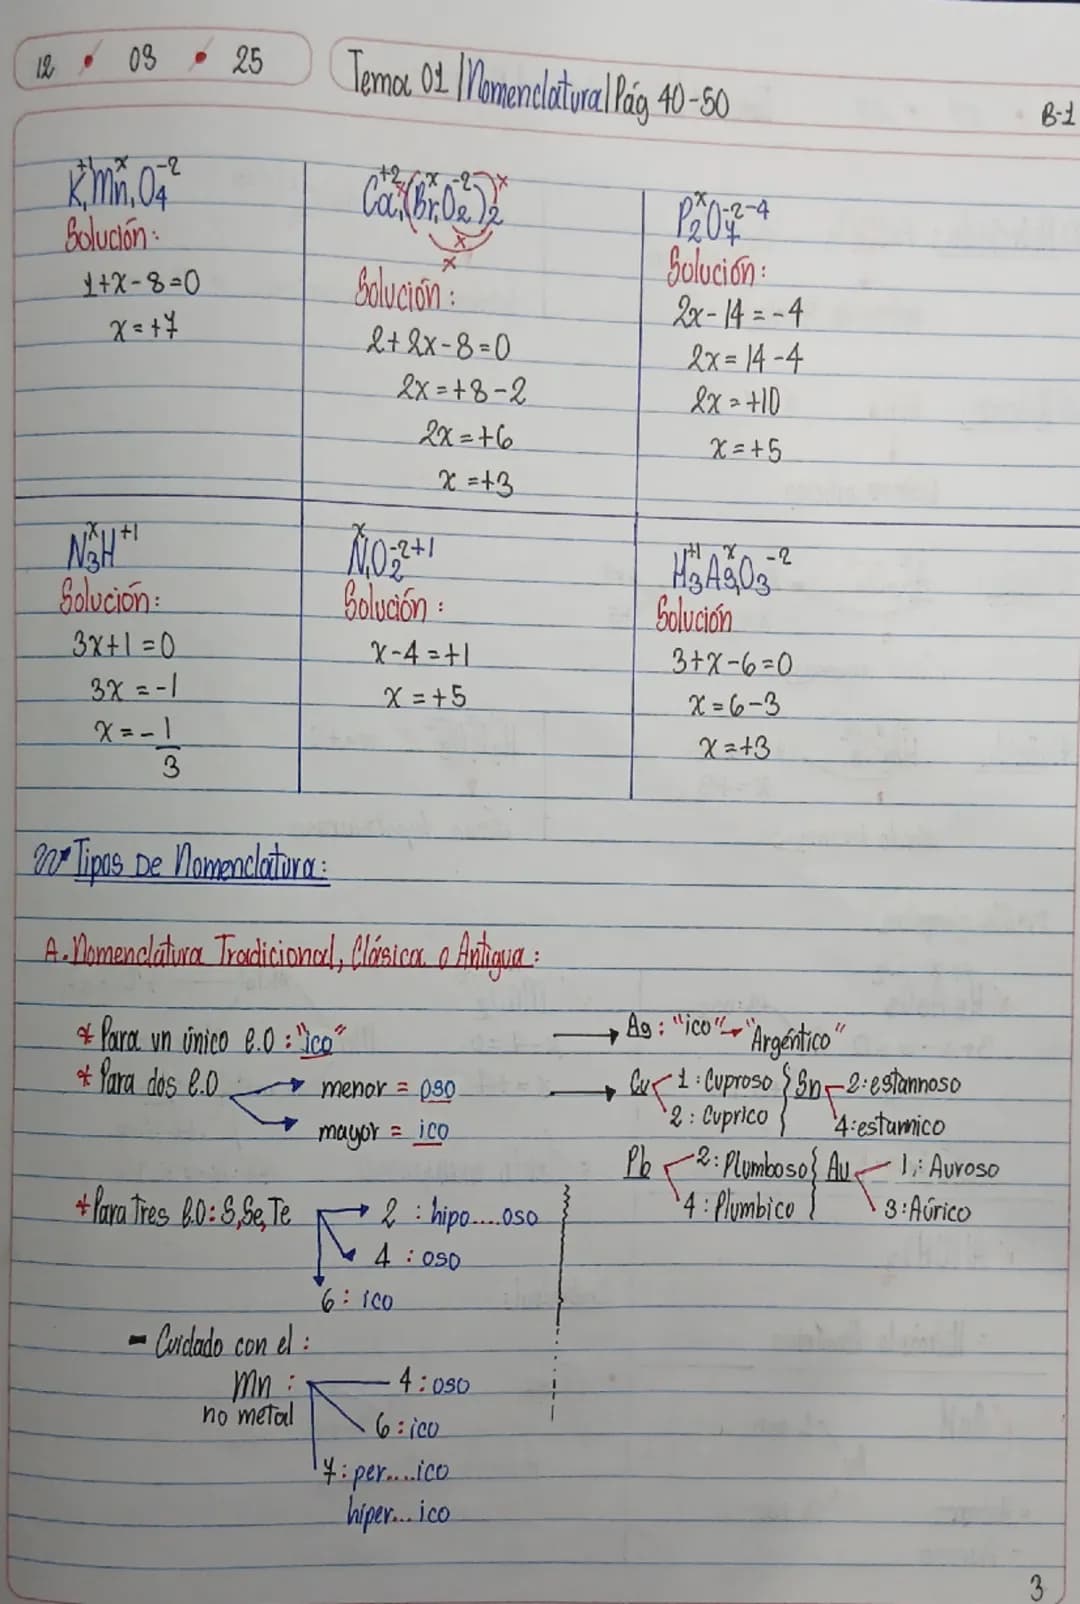 12 • 03 • 25
Tema 01 | Nomenclatura | Pág 40-50
B-1
K₁⁺¹Mn₁ˣO₄⁻²
Solución:
1+x-8=0
x=+7
Ca₁⁺²(Br₁ˣO₂⁻²)₂
x x
x
x
Solución:
2+2x-8=0
2x=+8-2
2x=+6
x=+3
P₂ˣO₇⁻²⁻⁴
Solución:
2x-14=-4
2x=14-4
2x=+10
x=+5
N₃ˣH⁺¹
Solución:
3x+1=0
3x=-1
x=-1
3
N₁ˣO₂⁻²⁺¹
Solución:
x-4=+1
x=+5
H₃⁺¹AsˣO₃⁻²
Solución
3+x-6=0
x=6-3
x=+3
Tipos De Nomenclatura:
A. Nomenclatura Tradicional, Clásica o Antigua:
* Para un único e.o: "ico" → Ag: "ico" → "Argéntico"
* Para dos e.o → menor = oso → Cu 1: Cuproso } Sn 2: estannoso
mayor = ico 2: Cuprico 4: estarnico
Pb 2: Plumboso { Au 1,: Auroso
4: Plumbico 3: Aúrico
* Para Tres E.O: S, Se, Te → 2 : hipo....oso
4 : oso
6 : ico
- Cuidado con el :
Mn : 4 : oso
no metal
6 : ico
7 : per....ico
hiper...ico
3